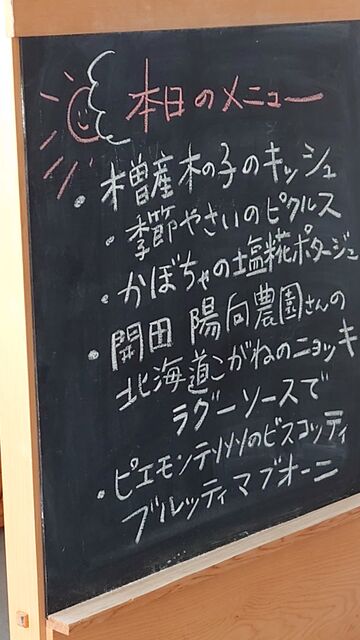 本日のメニュー
・樽産木の子のキッシュ
・季節やさいのピクルス
・かぼちゃの塩糀ポタージュ
・開田 陽向農園さんの
北海道こがねのニョッキ
ラグーソースで
・ピエモンテ州のビスコッティ
ブルッティマブオーニ